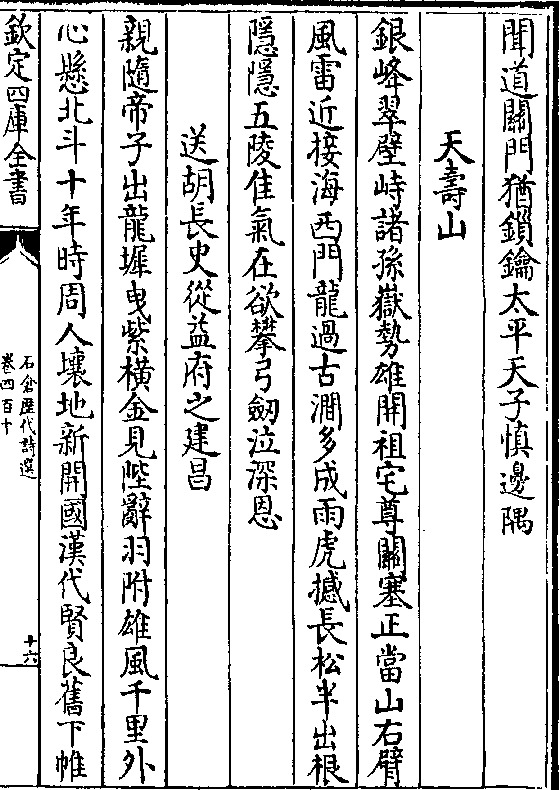 聞道關門猶鎖鑰太平天子慎邊隅
天壽山
銀峰翠壁峙諸孫嶽勢雄開祖宅尊關塞正當山右臂
風雷近接海西門龍過古澗多成雨虎撼長松半出根
隱隱五陵佳氣在欲攀弓劒泣深恩
送胡長史從益府之建昌
親隨帝子出龍墀曳紫橫金見陛辭羽附雄風千里外
心懸北斗十年時周人壤地新開國漢代賢良舊下帷
欽定四庫全書
石倉歴代詩選
卷四百十
十六